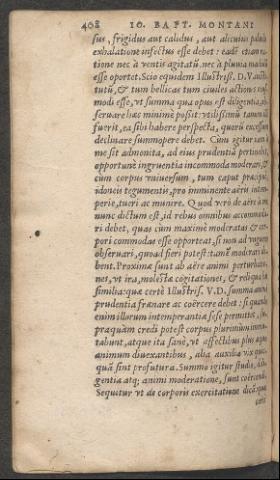 408 IO. BAPT. MONTANI
sus, frigidus aut calidus, aut alicuius paludis
exhalatione infectus esse debet: eadē etiam ra
tione nec à ventis agitatū, nec à pluuia madidū
esse oportet. Scio equidem Illustriss. D. V. actũ
tutũ, & tum bellicas tum ciuiles actiones
modi esse, vt summa qua opus est diligentia, ob
seruare hæc minimè possit: vtilissimũ tamen id
fuerit, ea sibi habere perspecta, quorū excessum
declinare summopere debet. Cùm igitur satis
me sit admonita, ad eius prudentiā pertinebit,
opportunè ingruentia incommoda moderari, &
cùm corpus vniuersum, tum caput præcipuè,
idoneis tegumentis, pro imminente aëris intem
perie, tueri ac munire. Quod verò de aëre à me
nunc dictum est, id rebus omnibus accommoda
ri debet, quas cùm maximè moderatas & cor
pori commodas esse oporteat, si non ad vnguem
obseruari, quoad fieri potest: tamē moderari de
bent. Proximæ sunt ab aëre animi perturbatio
nes, vt ira, molestæ cogitationes, & reliqua id
similia: quæ certè Illustriss. V. D. summa animi
prudentia frænare ac coërcere debet: si quando
enim illorum intemperantiæ sese permittet,
præquàm credi potest corpus plurimùm immu
tabunt, atque ita sanè, vt affectibus plus
animum diuexantibus, alia auxilia vix quic
quā sint profutura. Summo igitur studio, dili
gentia atq; animi moderatione, sunt coërcendi.
Sequitur vt de corporis exercitatione dicā: quæ